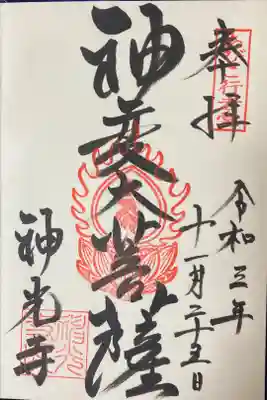 奉拝
令和三年
十一月二十五日
神変大菩薩
神光寺